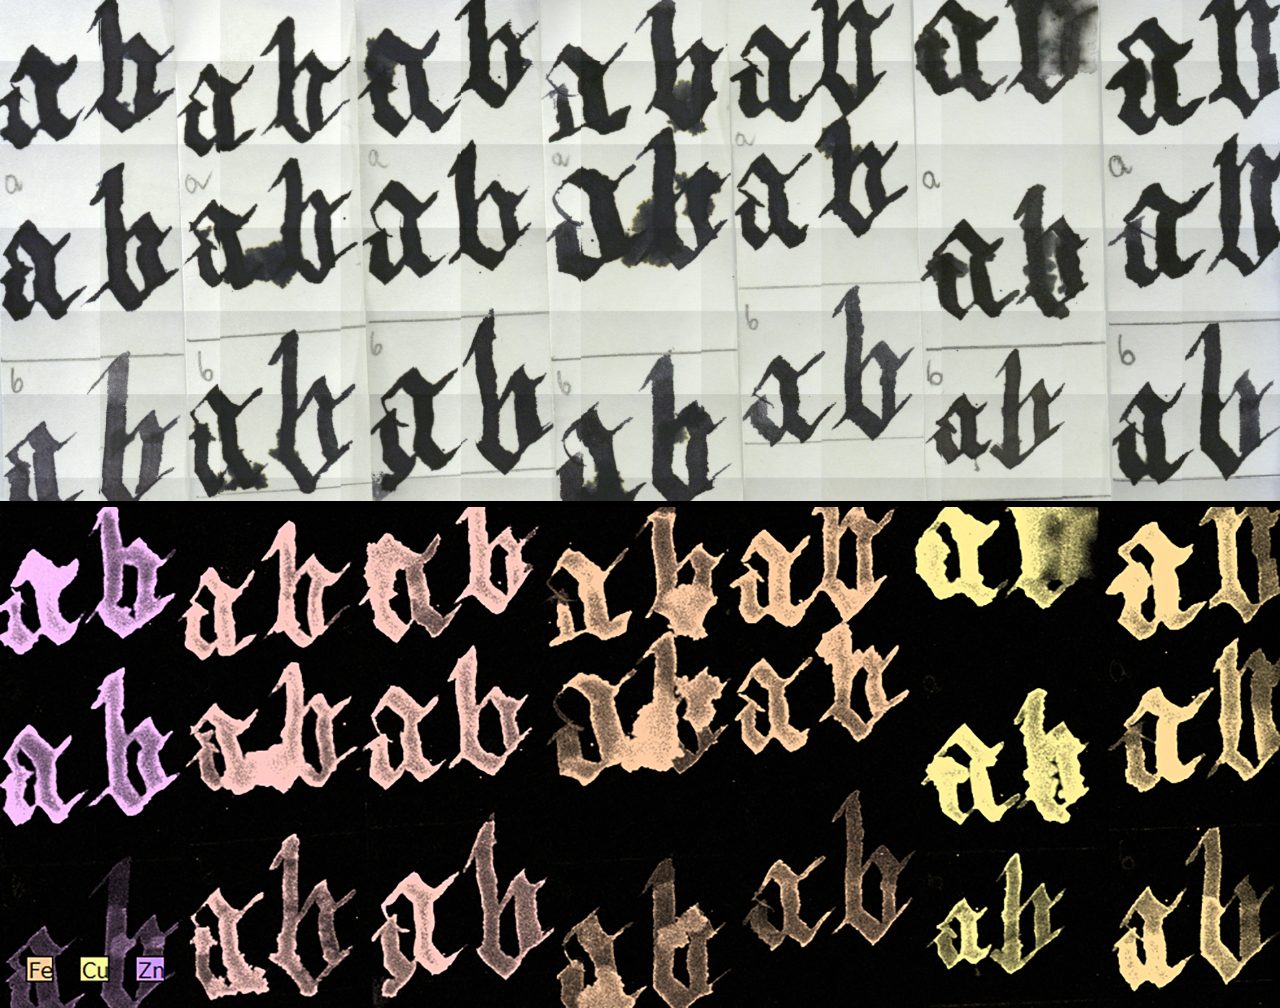 ab ab ab ab ab ab ab
a a a a a a a
ab ab ab ab ab ab ab
b b b b b b b
ab ab ab ab ab ab ab
ab ab ab ab ab ab ab
ab ab ab ab ab ab ab
ab ab ab ab ab ab ab
Fe Cu Zn